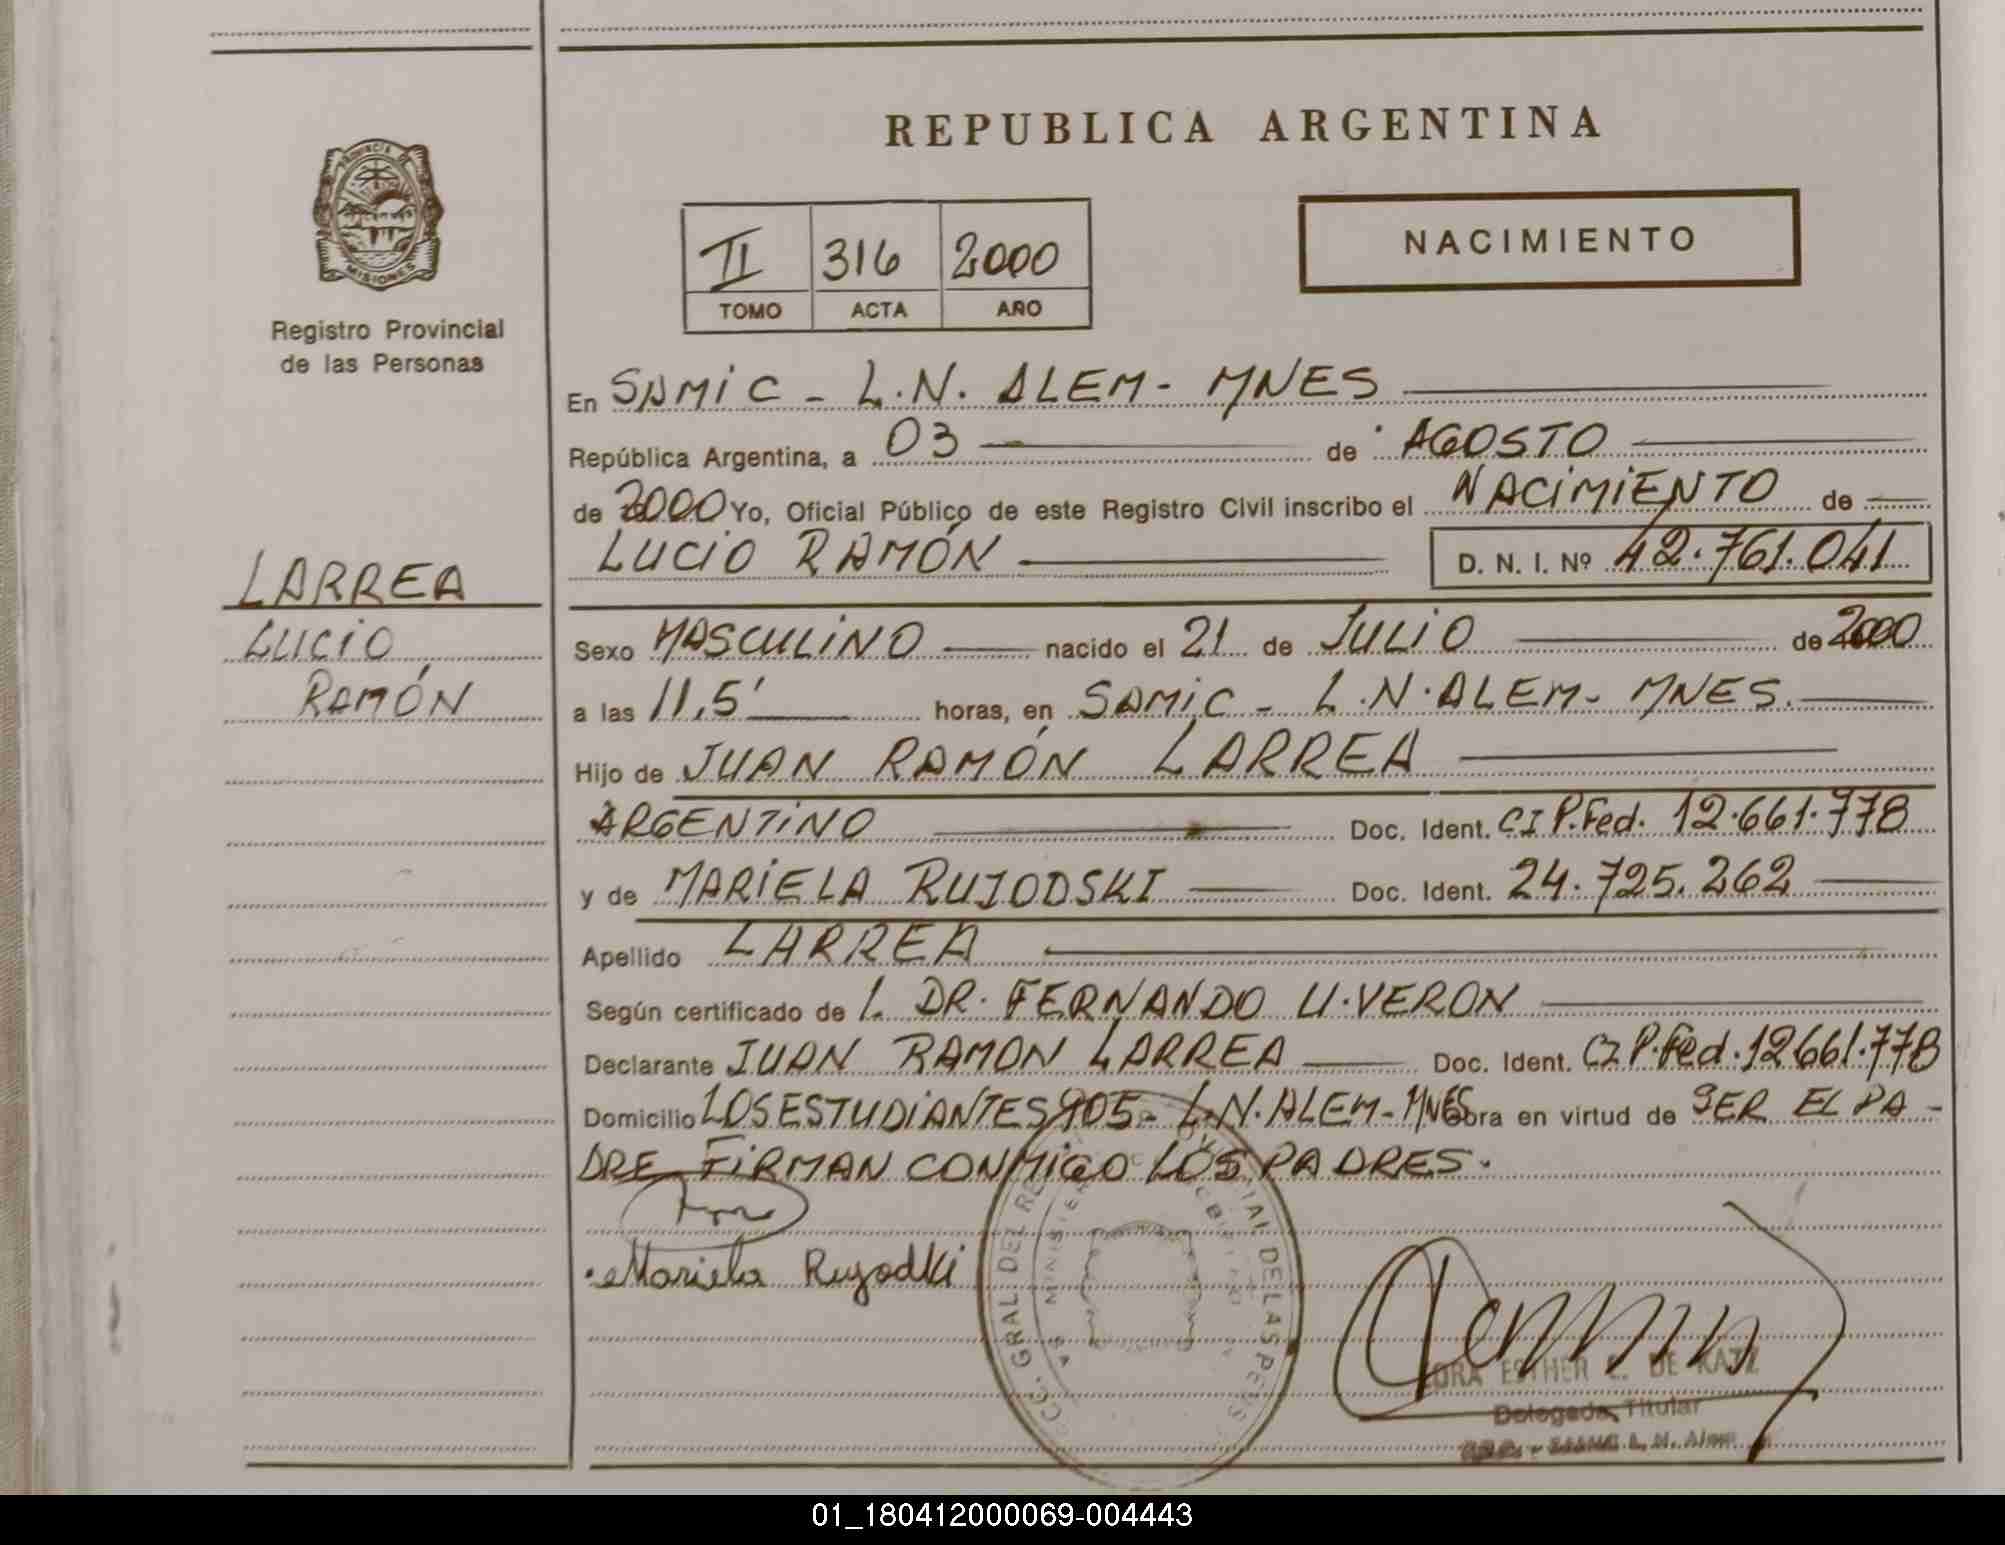 REPUBLICA ARGENTINA
PROVINCIA DE
MISIONES
Registro Provincial
de las Personas
II 316 2000
TOMO ACTA AÑO
NACIMIENTO
En SAMIC - L.N. ALEM - MNES
República Argentina, a 03 de AGOSTO
de 2000 Yo, Oficial Público de este Registro Civil inscribo el NACIMIENTO de
LUCIO RAMÓN D. N. I. Nº 42.761.041
LARREA
LUCIO
RAMÓN
Sexo MASCULINO nacido el 21 de JULIO de 2000
a las 11,5' horas, en SAMIC - L.N. ALEM - MNES.
Hijo de JUAN RAMÓN LARREA
ARGENTINO Doc. Ident. CI P.Fed. 12.661.778
y de MARIELA RUJODSKI Doc. Ident. 24.725.262
Apellido LARREA
Según certificado de l. DR. FERNANDO U. VERON
Declarante JUAN RAMON LARREA Doc. Ident. CI P.Fed. 12661.778
Domicilio LOS ESTUDIANTES 905 - L.N. ALEM - MNES obra en virtud de SER EL PA-
DRE FIRMAN CONMIGO LOS PADRES.
Mariela
ESTHER DE KATZ
Delegada Titular
L. N. Alem
01_180412000069-004443